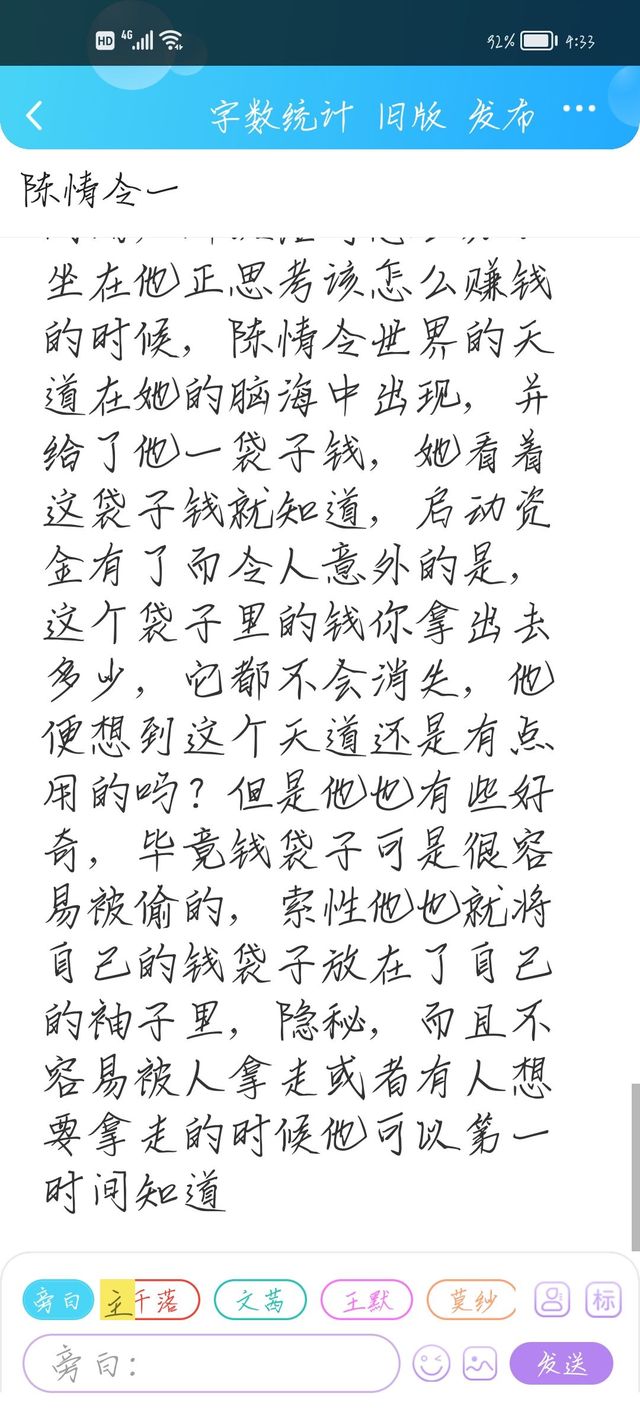 HD 4G 92% 4:33
字数统计 旧版 发布
陈情令一
坐在他正思考该怎么赚钱
的时候，陈情令世界的天
道在她的脑海中出现，并
给了他一袋子钱，她看着
这袋子钱就知道，启动资
金有了而令人意外的是，
这个袋子里的钱你拿出去
多少，它都不会消失，他
便想到这个天道还是有点
用的吗？但是他也有些好
奇，毕竟钱袋子可是很容
易被偷的，索性他也就将
自己的钱袋子放在了自己
的袖子里，隐秘，而且不
容易被人拿走或者有人想
要拿走的时候他可以第一
时间知道
旁白 主 千落 文茜 王默 莫纱 标
旁白： 发送